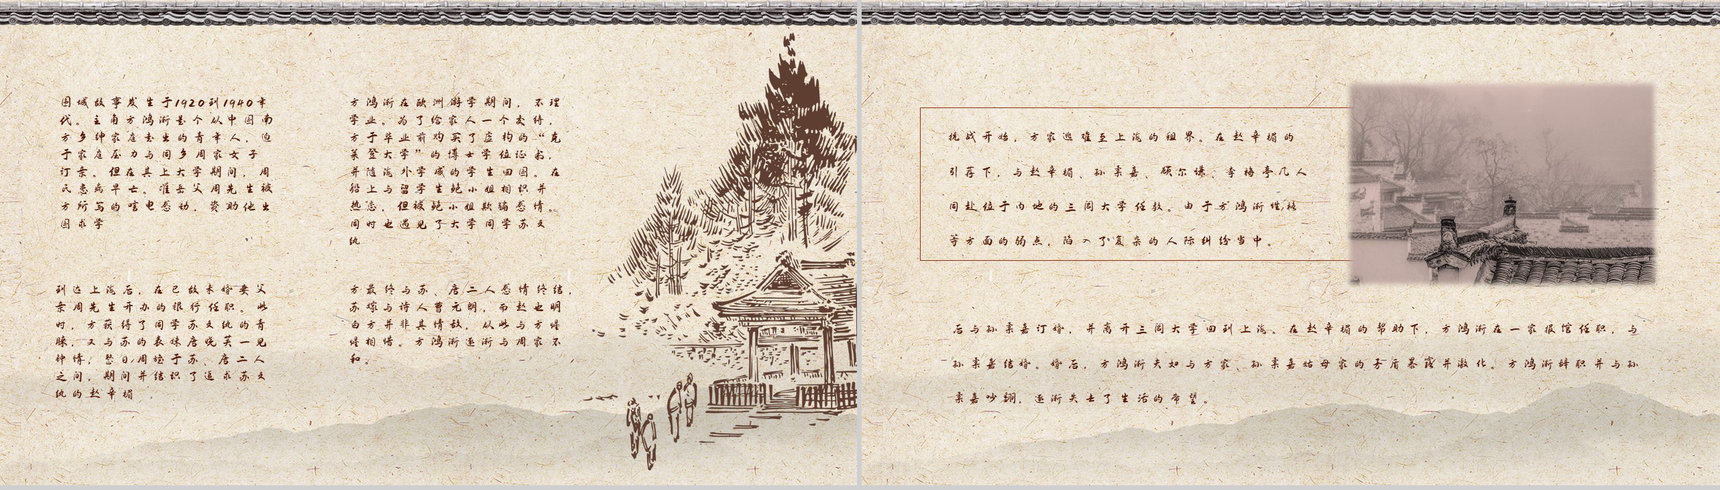 围城故事发生于1920到1940年
代。主角方鸿渐是个从中国南
方乡绅家庭走出的青年人，迫
于家庭压力与同乡周家女子
订亲。但在其上大学期间，周
氏患病早亡。准岳父周先生被
方所写的唁电感动，资助他出
国求学
方鸿渐在欧洲游学期间，不理
学业。为了给家人一个交待，
方于毕业前购买了虚构的“克
莱登大学”的博士学位证书，
并随海外学成的学生回国。在
船上与留学生鲍小姐相识并
热恋，但被鲍小姐欺骗感情。
同时也遇见了大学同学苏文
纨
到达上海后，在已故未婚妻父
亲周先生开办的银行任职。此
时，方获得了同学苏文纨的青
睐，又与苏的表妹唐晓芙一见
钟情，整日周旋于苏、唐二人
之间，期间并结识了追求苏文
纨的赵辛楣
方最终与苏、唐二人感情终结，
苏嫁与诗人曹元朗，而赵也明
白方并非其情敌，从此与方惺
惺相惜。方鸿渐逐渐与周家不
和。
抗战开始，方家逃难至上海的租界。在赵辛楣的
引荐下，与赵辛楣、孙柔嘉、顾尔谦、李梅亭几人
同赴位于内地的三闾大学任教。由于方鸿渐性格
等方面的弱点，陷入了复杂的人际纠纷当中。
后与孙柔嘉订婚，并离开三闾大学回到上海。在赵辛楣的帮助下，方鸿渐在一家报馆任职，与
孙柔嘉结婚。婚后，方鸿渐夫妇与方家、孙柔嘉姑母家的矛盾暴露并激化。方鸿渐辞职并与孙
柔嘉吵翻，逐渐失去了生活的希望。